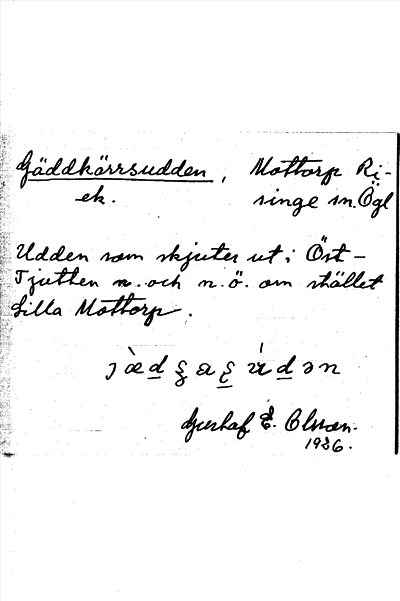 Gäddkärrsudden, Mottorp Ri-
ek. singe sn. Ögl
Udden som skjuter ut i Öst-
Tjutten n. och n. ö. om stället
Lilla Mottorp.
Gustaf E. Olsson.
1926.